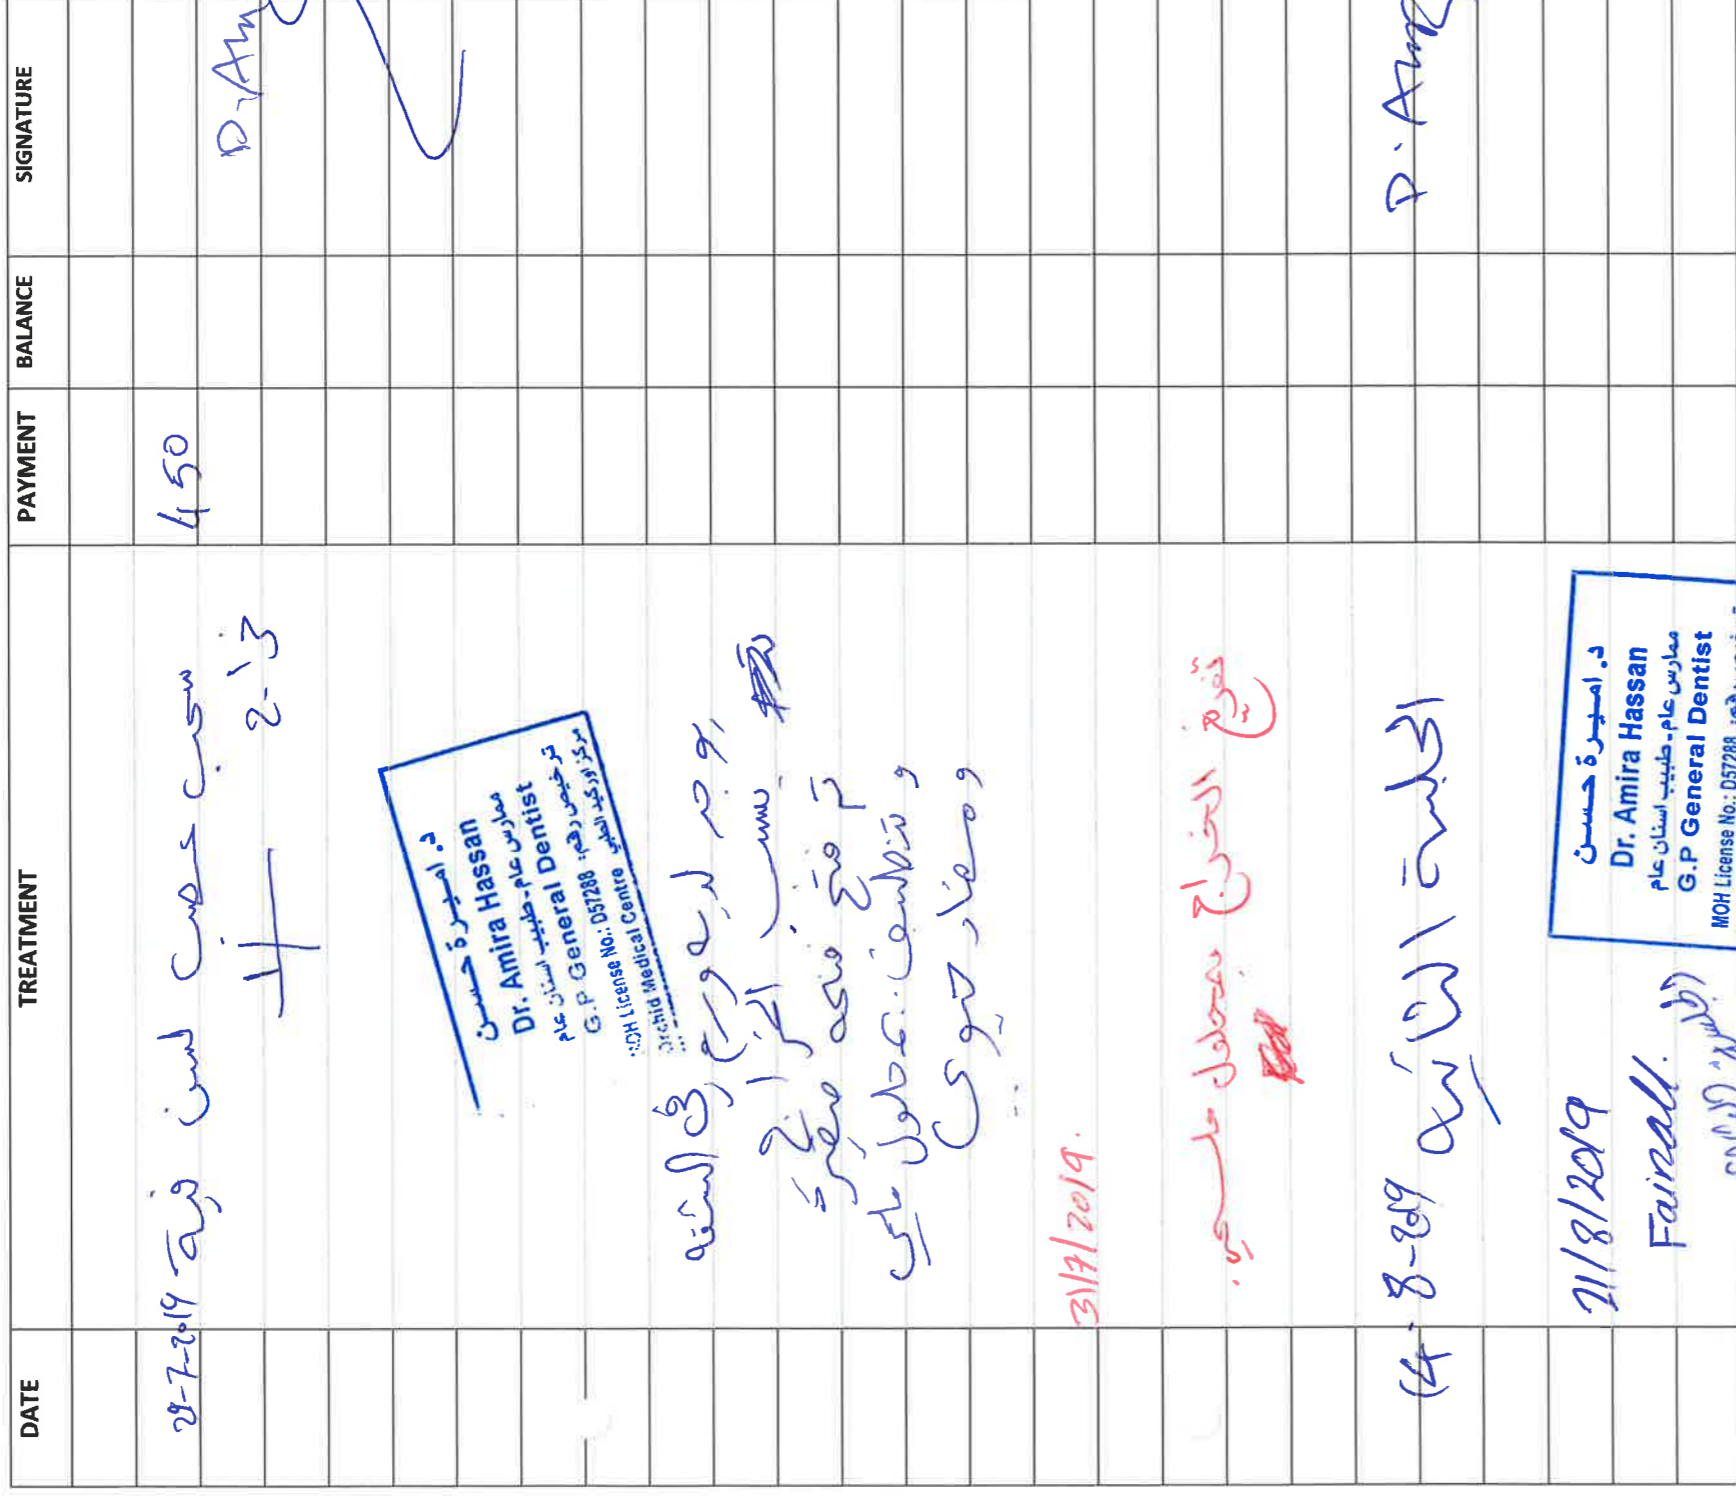 DATE TREATMENT PAYMENT BALANCE SIGNATURE
29-7-2019 سحب عصب لسن فرية 450
D. Am
د. اميرة حسن
Dr. Amira Hassan
ممارس عام - طبيب اسنان عام
G.P General Dentist
ترخيص رقم:
MOH License No.: D57288
مركز اوركيد الطبي
Orchid Medical Centre
يوجد لديه ورم في الشفه
بسبب الخراج
تم فتح فتحه صغيرة
و تنظيف بمحلول ملحي
و مضاد حيوي
31/7/2019.
تفريغ الخراج بمحلول ملحي.
4-8-2019 الجلسة الثانية D. Am
21/8/2019
د. اميرة حسن
Dr. Amira Hassan
ممارس عام - طبيب اسنان عام
G.P General Dentist
MOH License No.: D57288